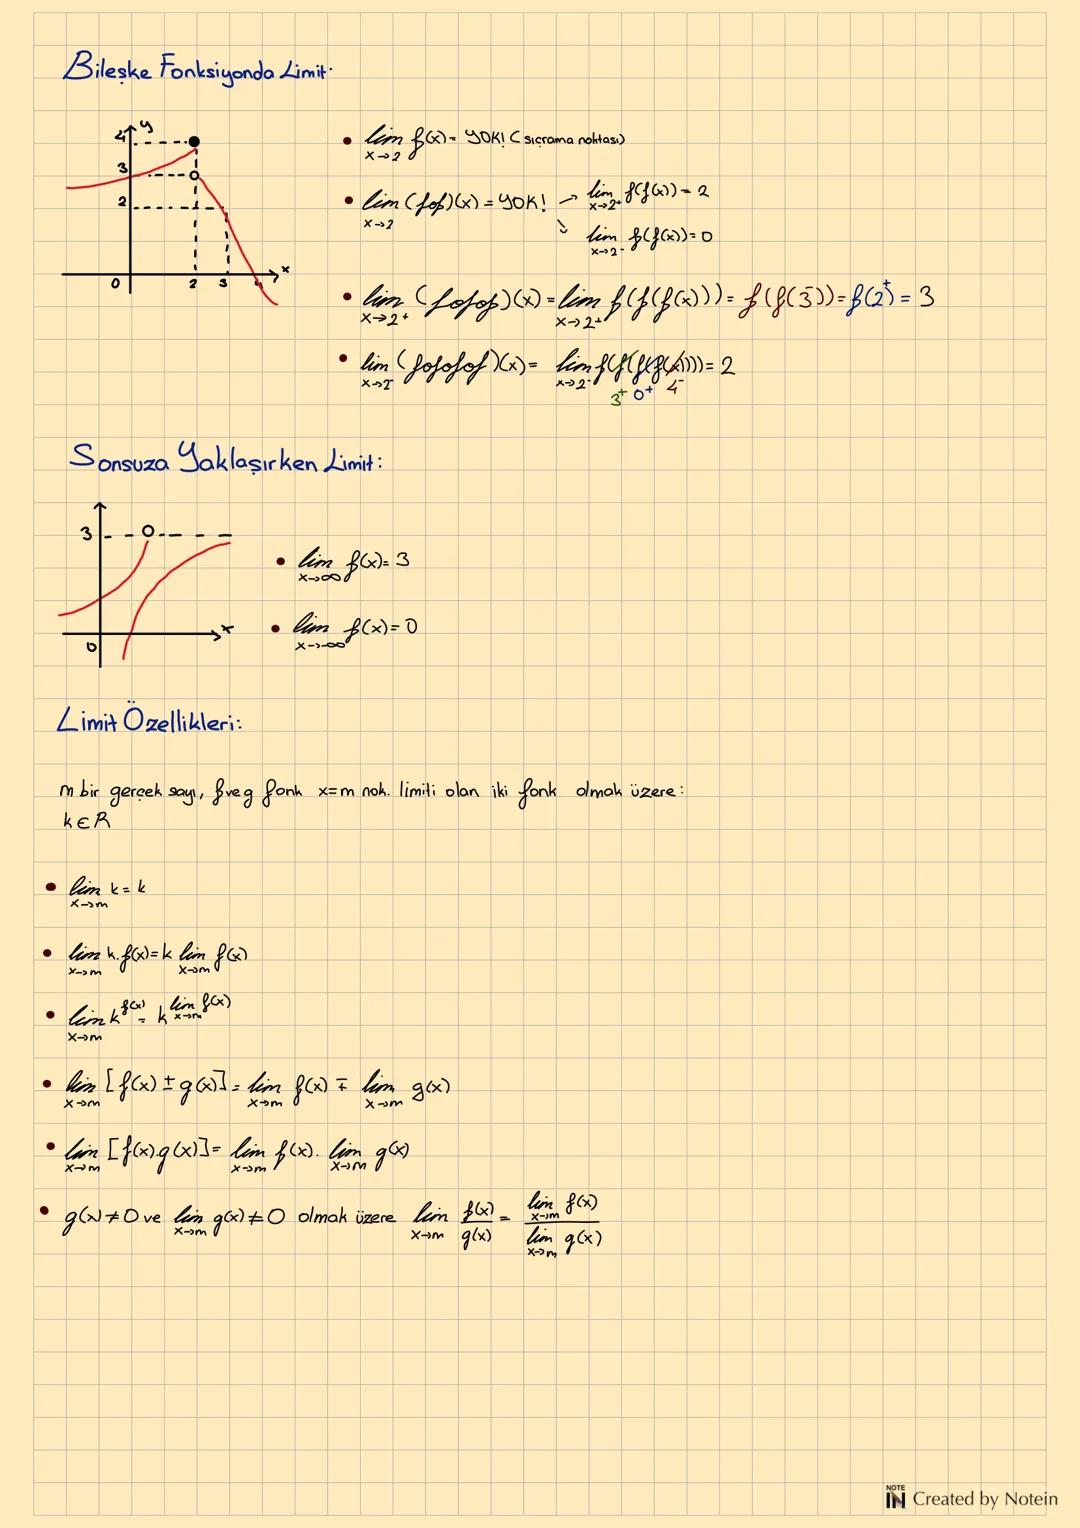 Bileşke Fonksiyonda Limit:
y
4
3
2
0 2 3 4 x
• lim x→2 f(x) = YOK! (sıçrama noktası)
• lim x→2 (fof)(x) = YOK! → lim x→2⁺ f(f(x)) = 2
↘ lim x→2⁻ f(f(x)) = 0
• lim x→2⁺ (fofof)(x) = lim x→2⁺ f(f(f(x))) = f(f(3⁻)) = f(2⁺) = 3
• lim x→2⁻ (fofofof)(x) = lim x→2⁻ f(f(f(f(x)))) = 2
3⁺ 0⁺ 4⁻
Sonsuza Yaklaşırken Limit:
3
0 x
• lim x→∞ f(x) = 3
• lim x→-∞ f(x) = 0
Limit Özellikleri:
m bir gerçek sayı, f ve g fonk x=m nok. limiti olan iki fonk olmak üzere:
k∈R
• lim x→m k = k
• lim x→m k.f(x) = k lim x→m f(x)
• lim x→m k^f(x) = k^lim x→m f(x)
• lim x→m [f(x) ± g(x)] = lim x→m f(x) ∓ lim x→m g(x)
• lim x→m [f(x).g(x)] = lim x→m f(x). lim x→m g(x)
• g(x)≠0 ve lim x→m g(x)≠0 olmak üzere lim x→m f(x)/g(x) = lim x→m f(x) / lim x→m g(x)
NOTE IN Created by Notein